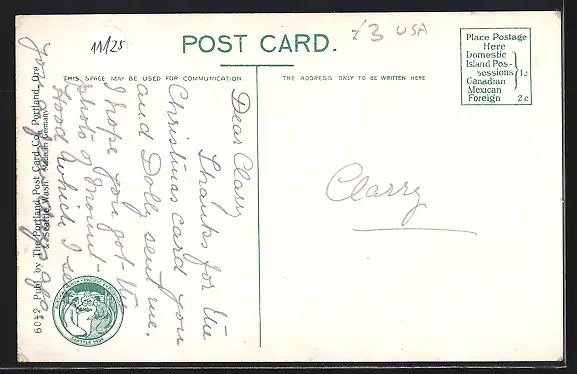 11/25
£3 USA
POST CARD.
THIS SPACE MAY BE USED FOR COMMUNICATION
THE ADDRESS ONLY TO BE WRITTEN HERE
Place Postage
Here
Domestic
Island Pos-
sessions
Canadian
Mexican
1c
Foreign 2c
Dear Clarry
Thanks for the
Christmas card you
and Dolly sent me.
I hope you got the
photo of Mount-
Hood which I sent
you
days ago
Clarry
6042 Publ. by The Portland Post Card Co., Portland, Ore.
& Seattle, Wash. Made in Germany
SEATTLE 1909